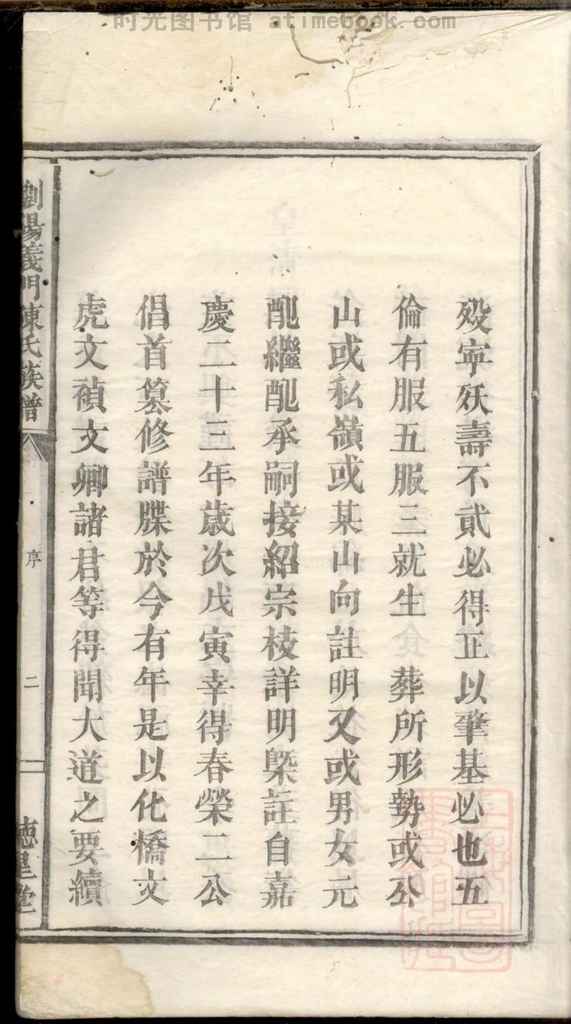 时光图书馆 atimebook.com
殁寧殀壽不貳必得正以肇基必也五
倫有服五服三就生 葬所形勢或公
山或私嶺或某山向註明又或男女元
配繼配承嗣接紹宗枝詳明槩註自嘉
慶二十三年歲次戊寅幸得春榮二公
倡首纂修譜牒於今有年是以化橋文
虎文禎文卿諸君等得聞大道之要續
瀏陽義門陳氏族譜
序
二
德星堂